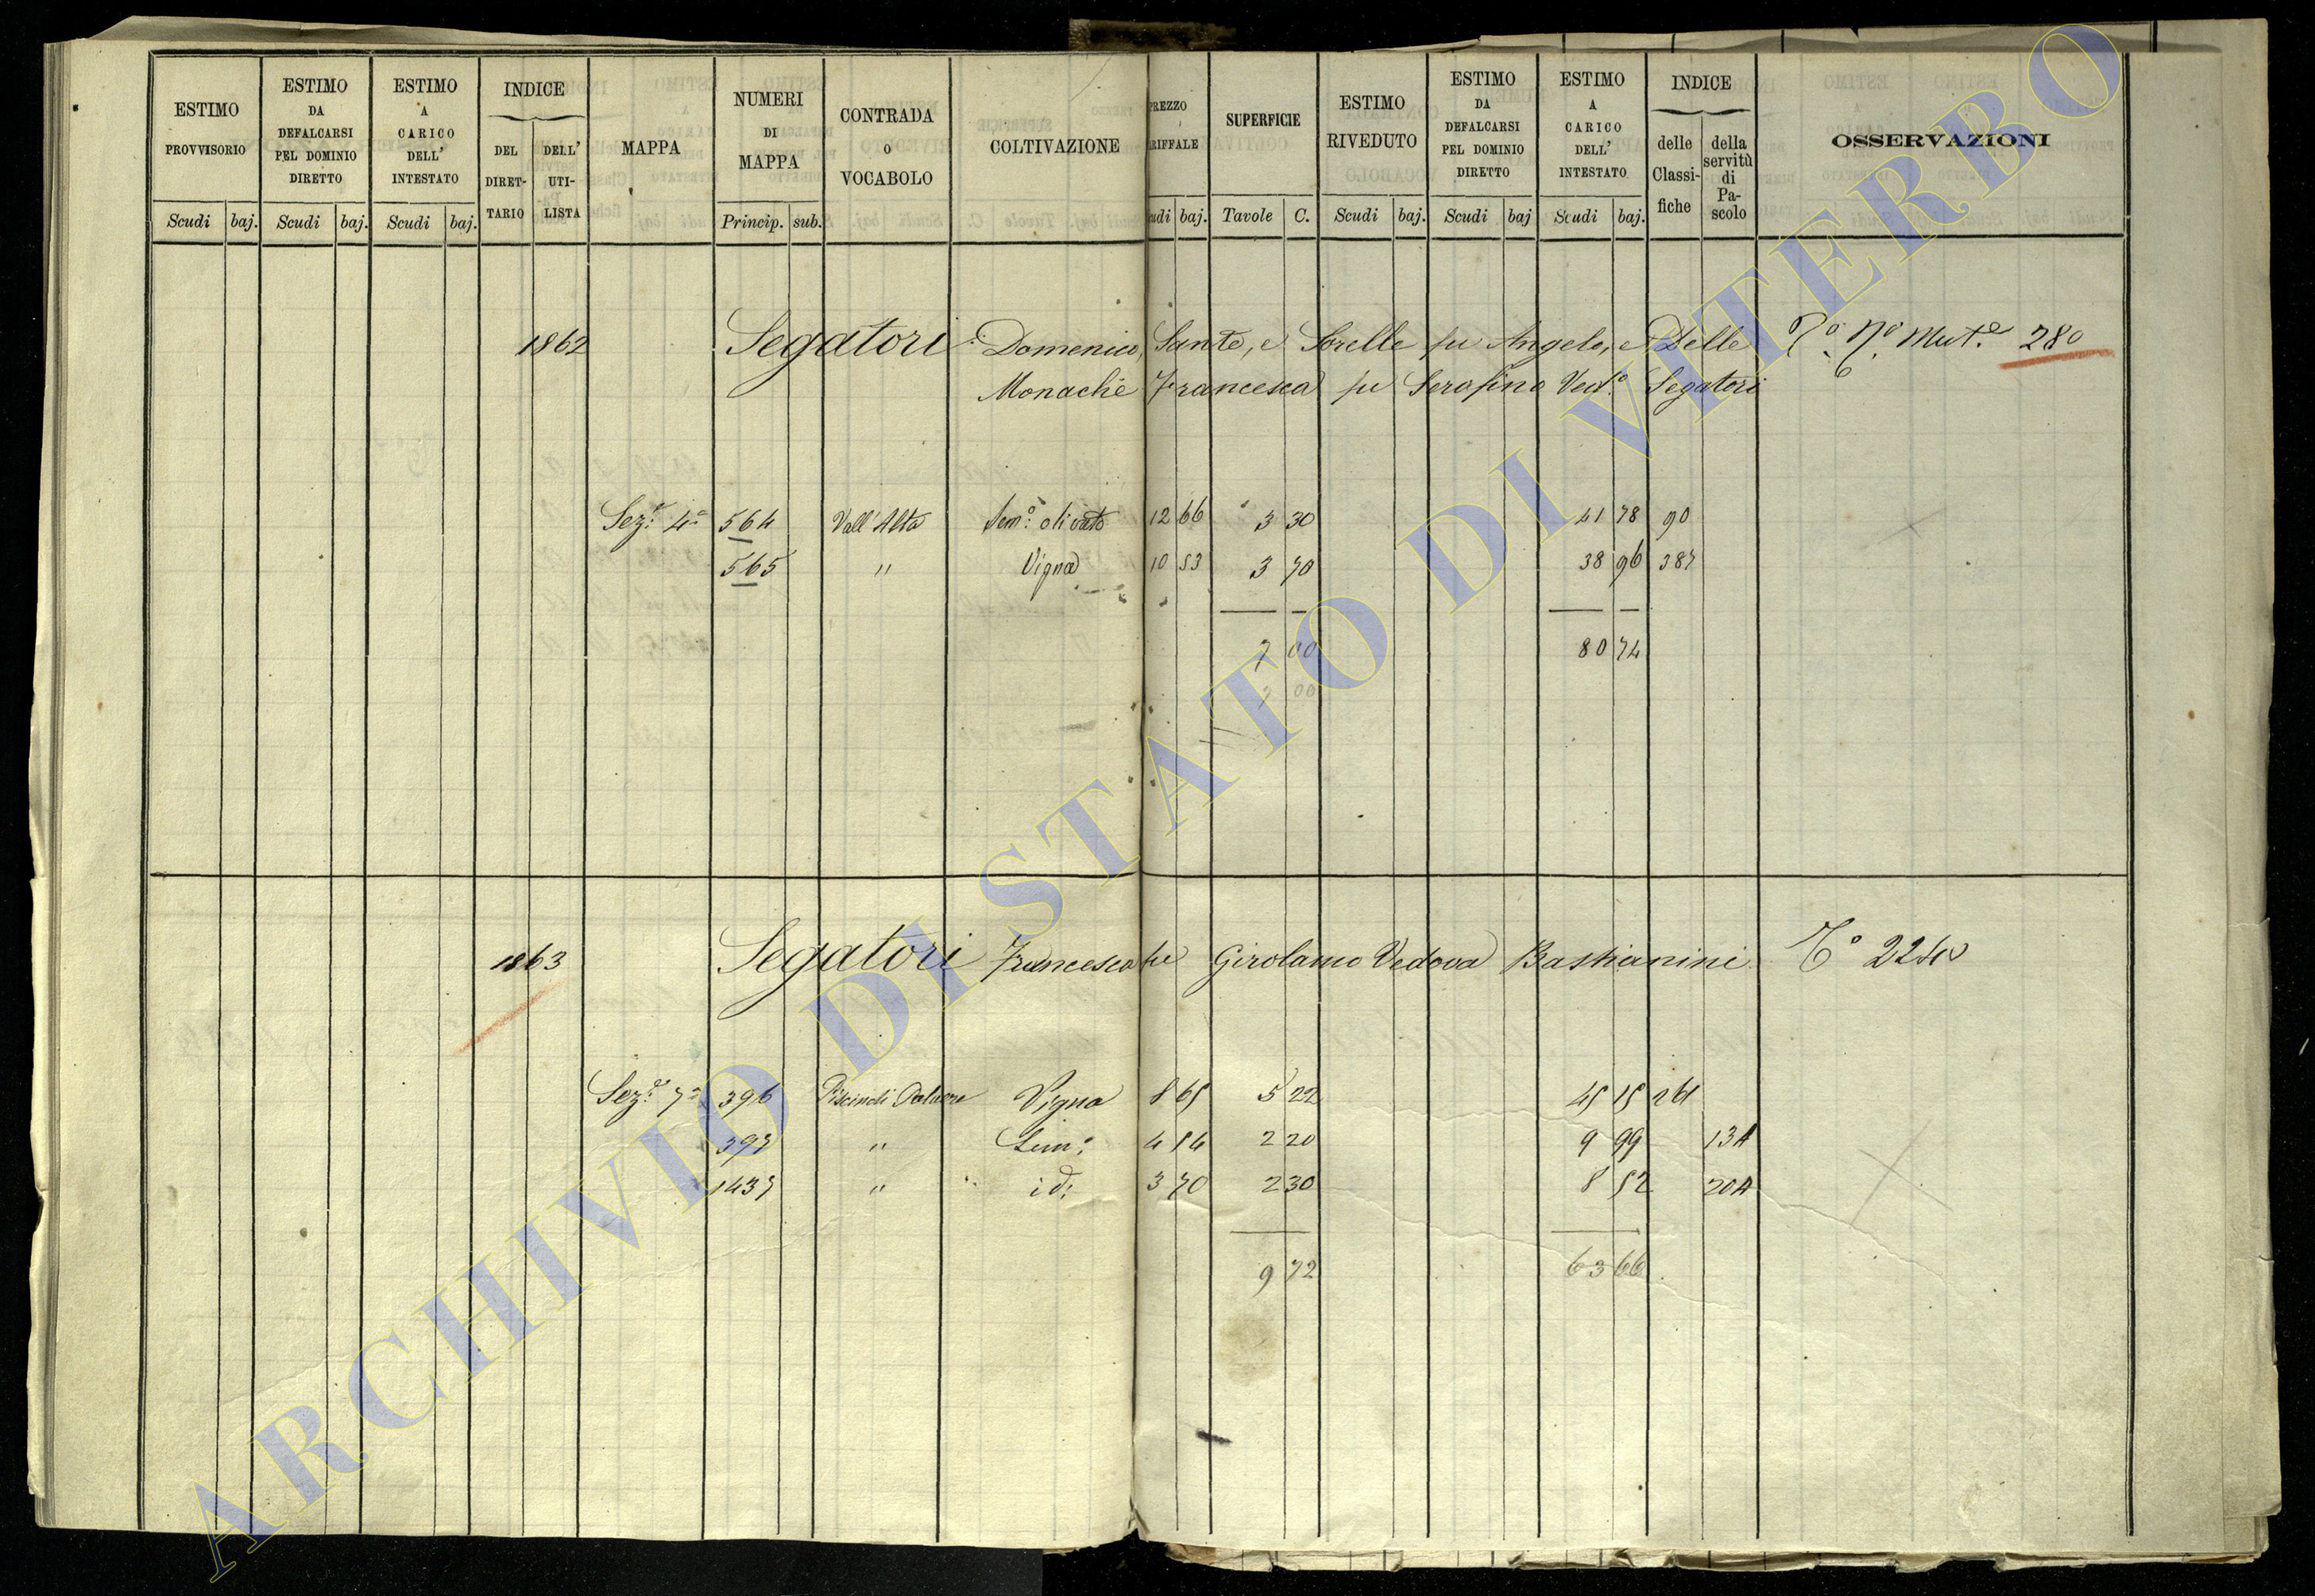 ESTIMO PROVVISORIO
ESTIMO DA DEFALCARSI PEL DOMINIO DIRETTO
ESTIMO A CARICO DELL' INTESTATO
INDICE
DEL DIRET-TARIO
DELL' UTI-LISTA
MAPPA
NUMERI DI MAPPA
CONTRADA O VOCABOLO
COLTIVAZIONE
PREZZO
ARIFFALE
SUPERFICIE
ESTIMO RIVEDUTO
ESTIMO DA DEFALCARSI PEL DOMINIO DIRETTO
ESTIMO A CARICO DELL' INTESTATO
INDICE
delle Classi-fiche
della servitù di Pa-scolo
OSSERVAZIONI
Scudi baj. Scudi baj. Scudi baj. Princip. sub. udi baj. Tavole C. Scudi baj. Scudi baj Scudi baj.
1862 Segatori Domenico, Sante, e Sorelle fu Angelo, e Delle Mut.e 280
Monache Francesca fu Serafino Ved.a Segatori
Sez.e 4a 564 Vall'Alta Sem.o olivato 12 66 3 30 41 78 90
565 " Vigna 10 53 3 70 38 96 387
7 00 80 74
7 00
1863 Segatori Francesca fu Girolamo Vedova Bastianini
Sez.e 7a 396 Vigna 8 65 5 22 45 15 261
397 " Sem.o 4 54 2 20 9 99 13A
1437 " id: 3 70 2 30 8 52 20A
9 72 63 66
ARCHIVIO DI STATO DI VITERBO